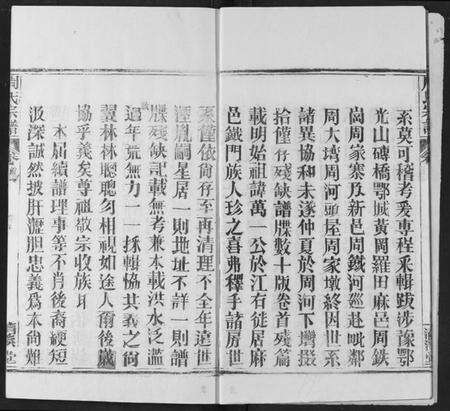 系莫可稽考爰車程釆輯跋涉豫鄂
光山磚橋鄂城黃岡羅田麻邑周鉄
崗周家寨及新邑周鐵河廵赴毗鄰
周大塆周河頭屋周家墩終因世系
諸異協和未遂仲夏於周河下塆掇
拾僅存殘缺譜牒數十版卷首殘篇
載明始祖諱萬一公於江右徙居麻
邑鐵門族人珍之喜弗釋手諸房世
系僅依尙存至再清理不全年遠世
湮胤嗣星居一則地址不詳一則譜
牒殘缺記載無考兼本載洪水泛濫
過年荒無力一一採輯恊共義之尙
冀林林聰聰勿相視如途人爾後歲
協乎義矣尊祖敬宗收族耳
本届續譜理事等不肖後裔綆短
汲深誠然披肝瀝胆忠義爲本尙難
周氏宗譜
卷
堂